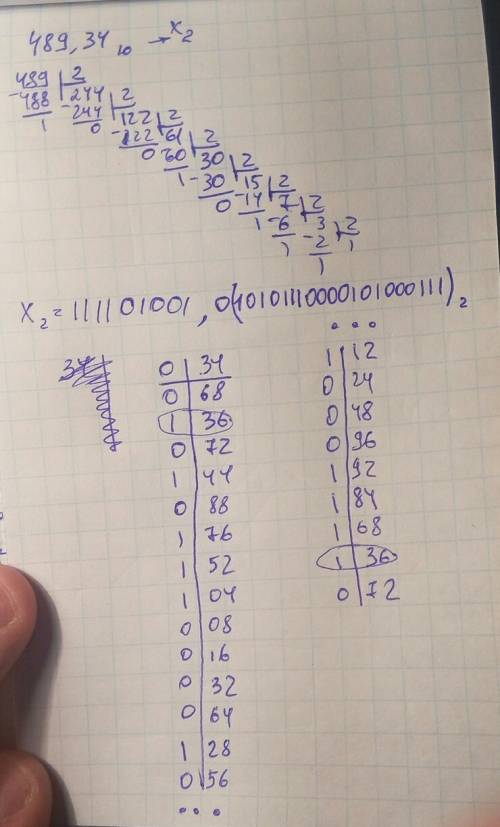 489,34₁₀ → X₂
-489 | 2
488 | -244 | 2
1 244 | 122 | 2
0 -122 61 | 2
0 60 30 | 2
1 -30 15 | 2
0 -14 7 | 2
1 -6 3 | 2
1 -2 1
1
X₂ = 111101001, 0(10101110000101000111)₂
34
0 | 34
0 | 68
1 | 36
0 | 72
1 | 44
0 | 88
1 | 76
1 | 52
1 | 04
0 | 08
0 | 16
0 | 32
0 | 64
1 | 28
0 | 56
...
...
1 | 12
0 | 24
0 | 48
0 | 96
1 | 92
1 | 84
1 | 68
1 | 36
0 | 72